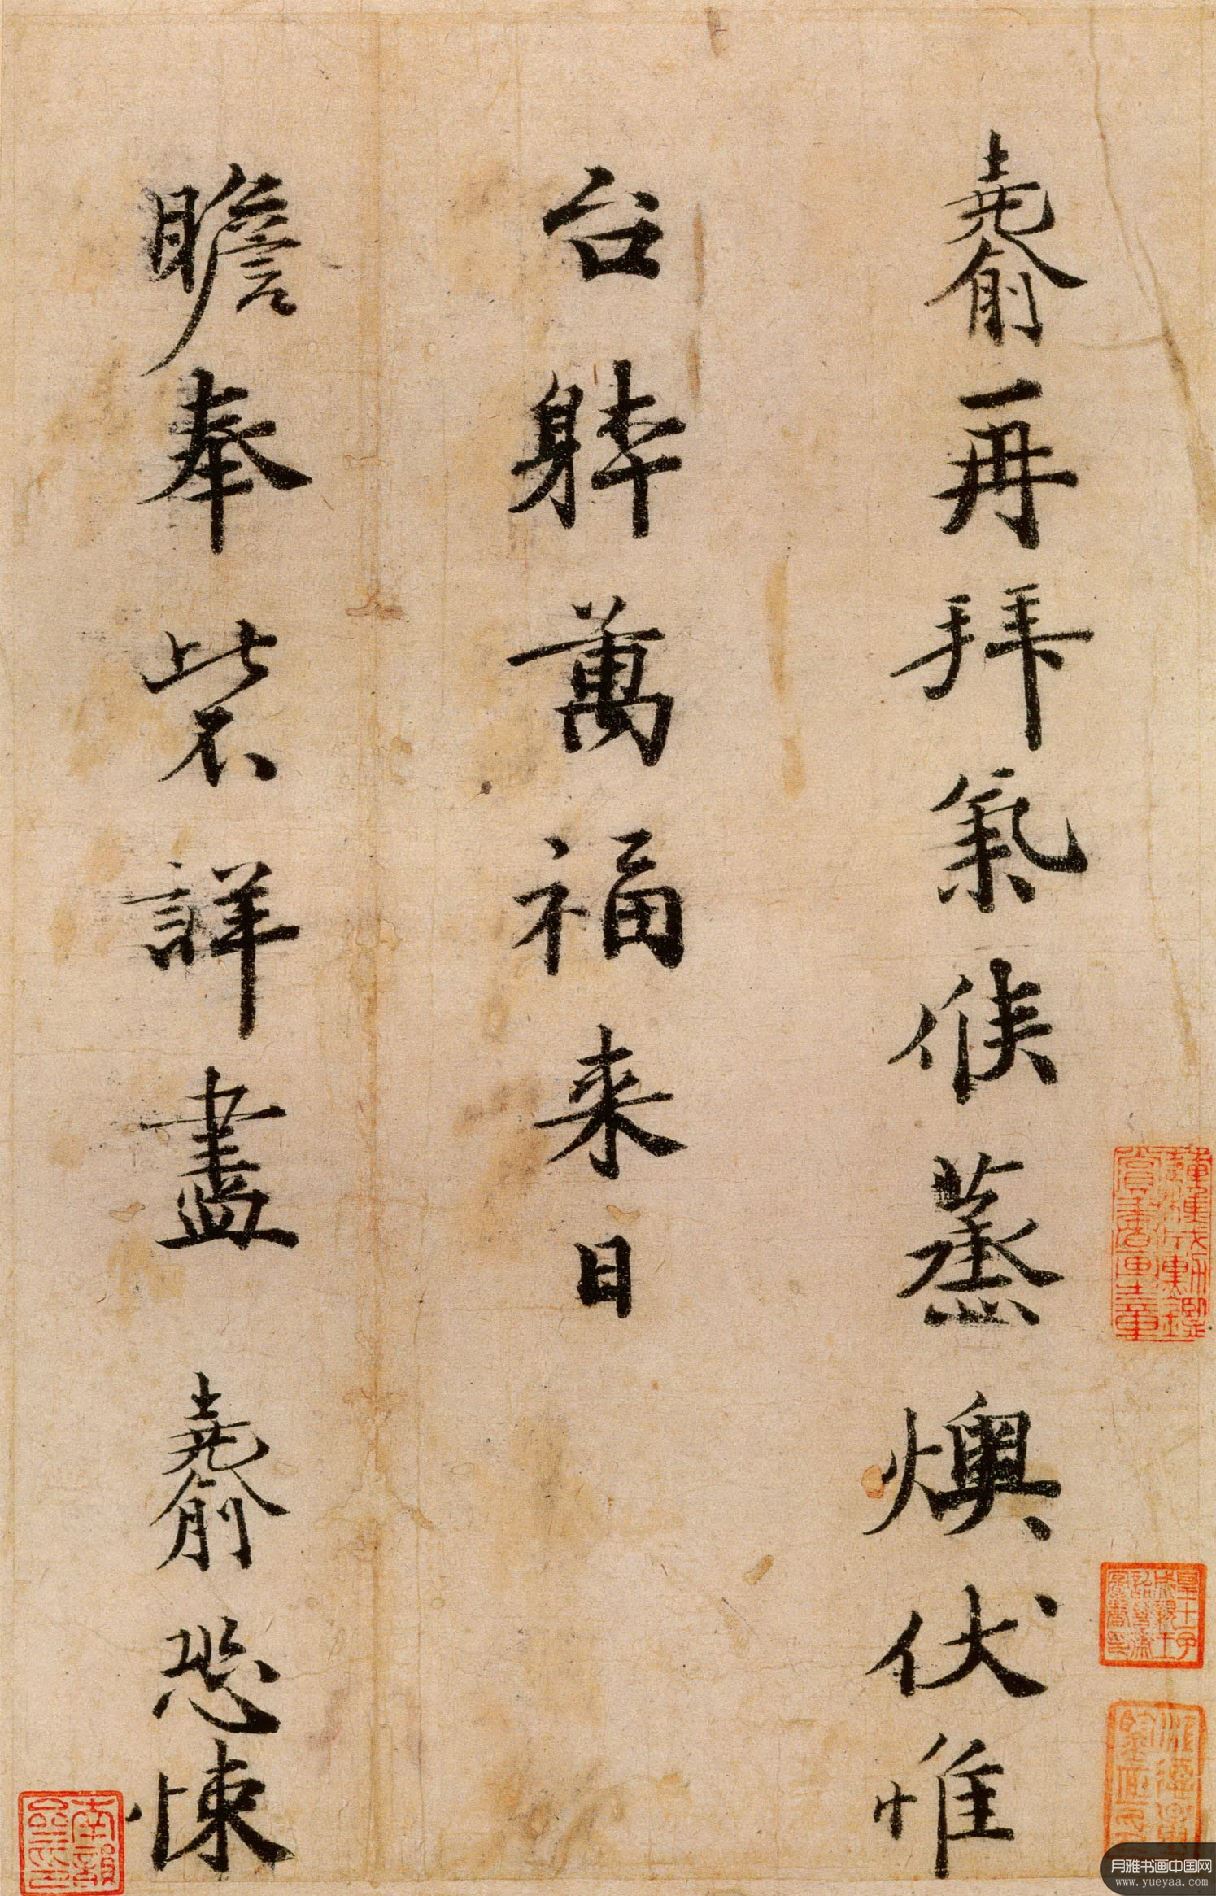 堯俞再拜氣候蒸燠伏惟
台躰萬福来日
瞻奉此不詳盡 堯俞恐悚
月雅书画中国网
www.yueyaa.com